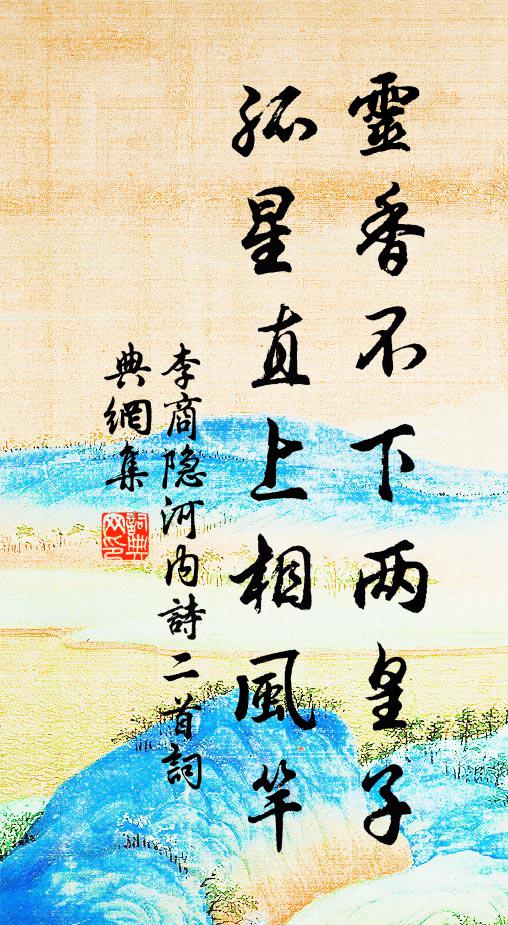 靈香不下两皇子
孤星直上相風竿
李商隐河内詩二首詞
典網集